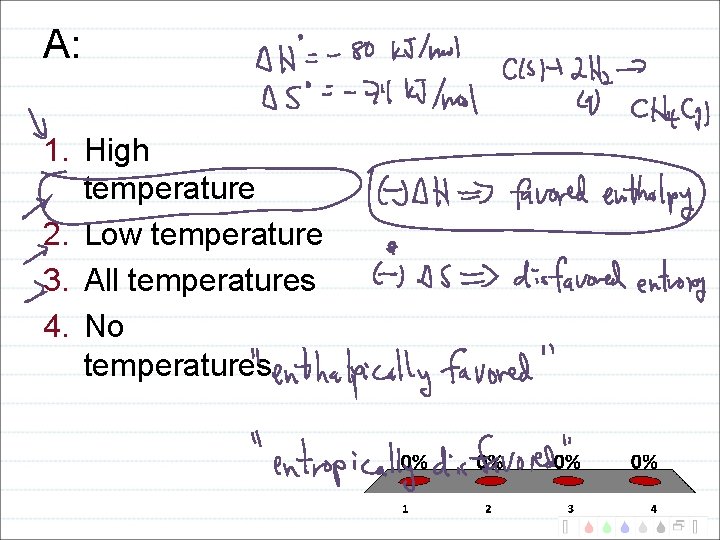 A:
ΔH° = -80 kJ/mol
ΔS° = -74 kJ/mol
C(s) + 2H2 →
(g)
CH4(g)
1. High
temperature
(-)ΔH ⇒ favored enthalpy
2. Low temperature
(-) ΔS ⇒ disfavored entropy
3. All temperatures
4. No
temperatures
"enthalpically favored"
"entropically disfavored"
0% 0% 0% 0%
1 2 3 4